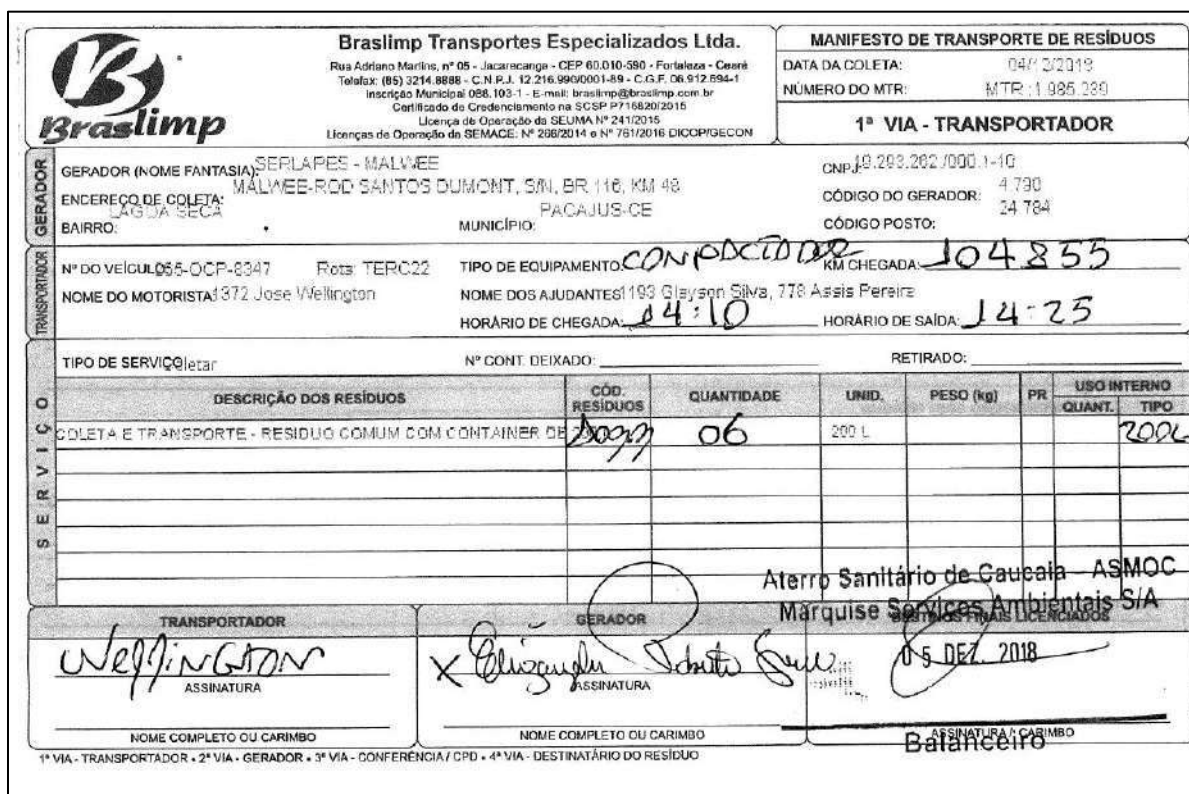 Braslimp
Braslimp Transportes Especializados Ltda.
Rua Adriano Martins, nº 05 - Jacarecanga - CEP 60.010-590 - Fortaleza - Ceará
Telefax: (85) 3214.8888 - C.N.P.J. 12.216.990/0001-89 - C.G.F. 06.912.694-1
Inscrição Municipal 088.103-1 - E-mail: braslimp@braslimp.com.br
Certificado de Credenciamento na SCSP P716820/2015
Licença de Operação da SEUMA Nº 241/2015
Licenças de Operação da SEMACE: Nº 266/2014 e Nº 761/2016 DICOP/GECON
MANIFESTO DE TRANSPORTE DE RESÍDUOS
DATA DA COLETA:
NÚMERO DO MTR: MTR :1.985.280
1ª VIA - TRANSPORTADOR
GERADOR
GERADOR (NOME FANTASIA): SERLAPES - MALWEE CNPJ:
ENDEREÇO DE COLETA: MALWEE-ROD SANTOS DUMONT, S/N, BR 116, KM 48 CÓDIGO DO GERADOR: 4.790
BAIRRO: LAGOA SECA MUNICÍPIO: PACAJUS-CE CÓDIGO POSTO: 24.784
TRANSPORTADOR
Nº DO VEÍCULO: 055-OCP-8347 Rota: TERC22 TIPO DE EQUIPAMENTO: KM CHEGADA: 104855
NOME DO MOTORISTA: 1372 Jose Wellington NOME DOS AJUDANTES: 1193 Glayson Silva, 778 Assis Pereira
HORÁRIO DE CHEGADA: 14:10 HORÁRIO DE SAÍDA: 14:25
SERVIÇO
TIPO DE SERVIÇO: Coletar Nº CONT. DEIXADO: RETIRADO:
DESCRIÇÃO DOS RESÍDUOS CÓD. RESÍDUOS QUANTIDADE UNID. PESO (kg) PR USO INTERNO QUANT. TIPO
COLETA E TRANSPORTE - RESIDUO COMUM COM CONTAINER DE 06 200 L 200L
Aterro Sanitário de Caucaia - ASMOC
Marquise Serviços Ambientais S/A
TRANSPORTADOR GERADOR DESTINOS FINAIS LICENCIADOS
05 DEZ. 2018
Wellington
ASSINATURA ASSINATURA ASSINATURA / CARIMBO
Balanceiro
NOME COMPLETO OU CARIMBO NOME COMPLETO OU CARIMBO
1ª VIA - TRANSPORTADOR • 2ª VIA - GERADOR • 3ª VIA - CONFERÊNCIA / CPD • 4ª VIA - DESTINATÁRIO DO RESÍDUO